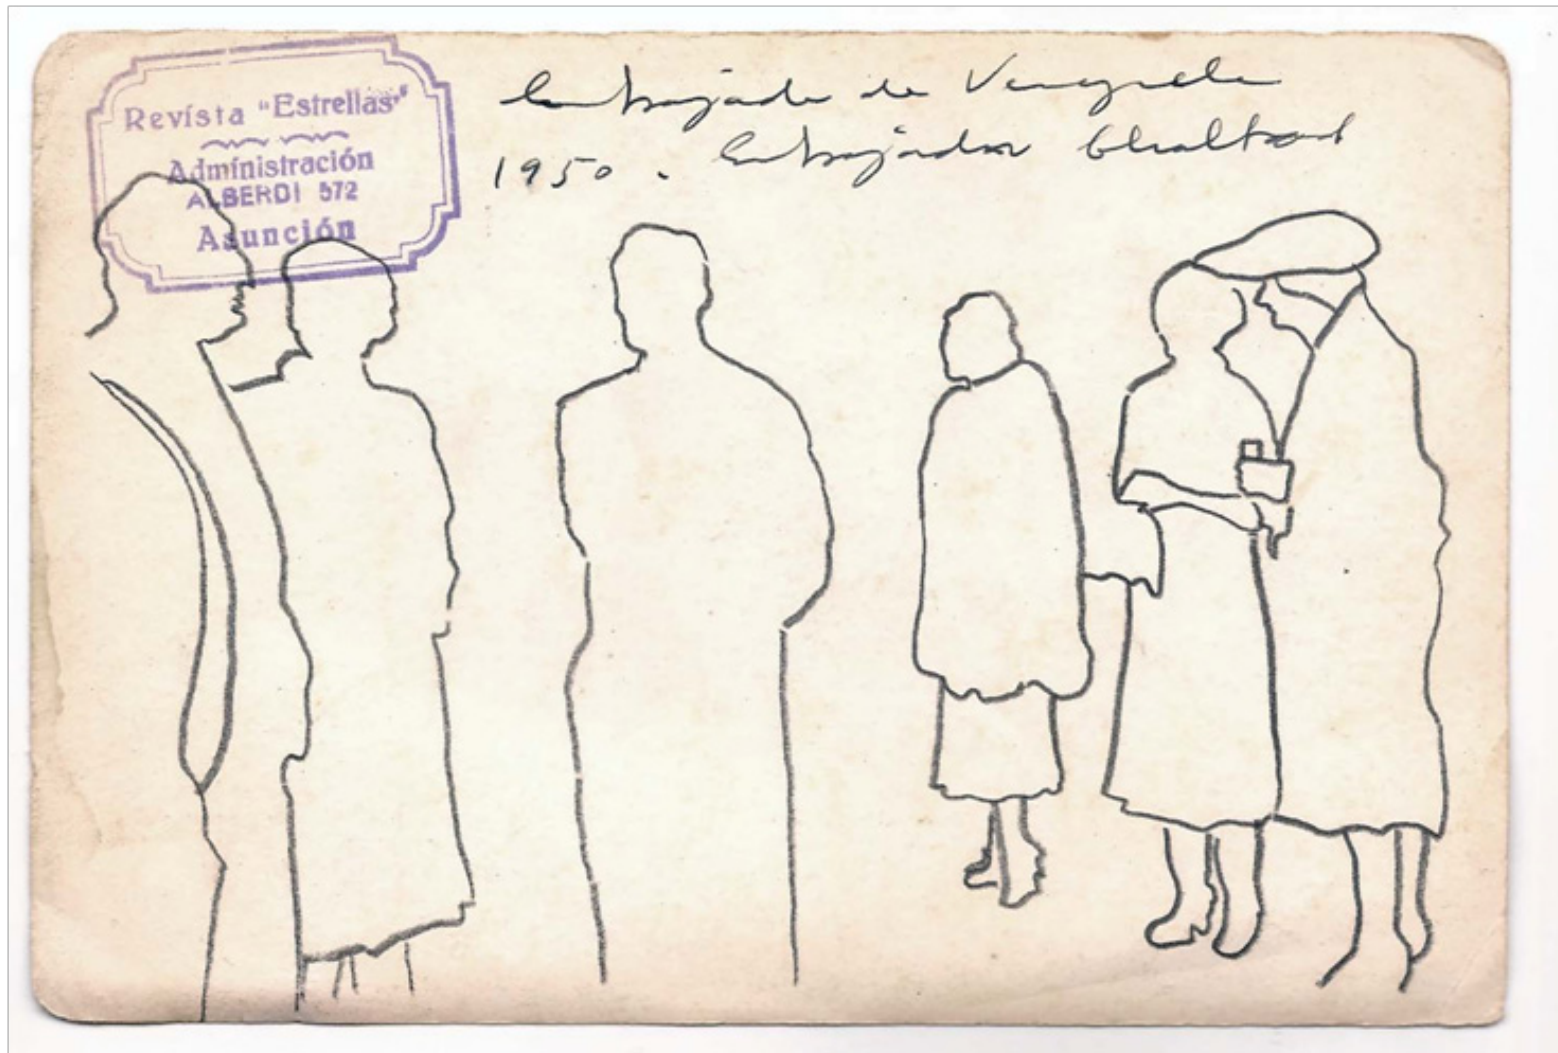 Revista "Estrellas"
Administración
ALBERDI 572
Asunción
Embajada de Venezuela
1950. Embajador